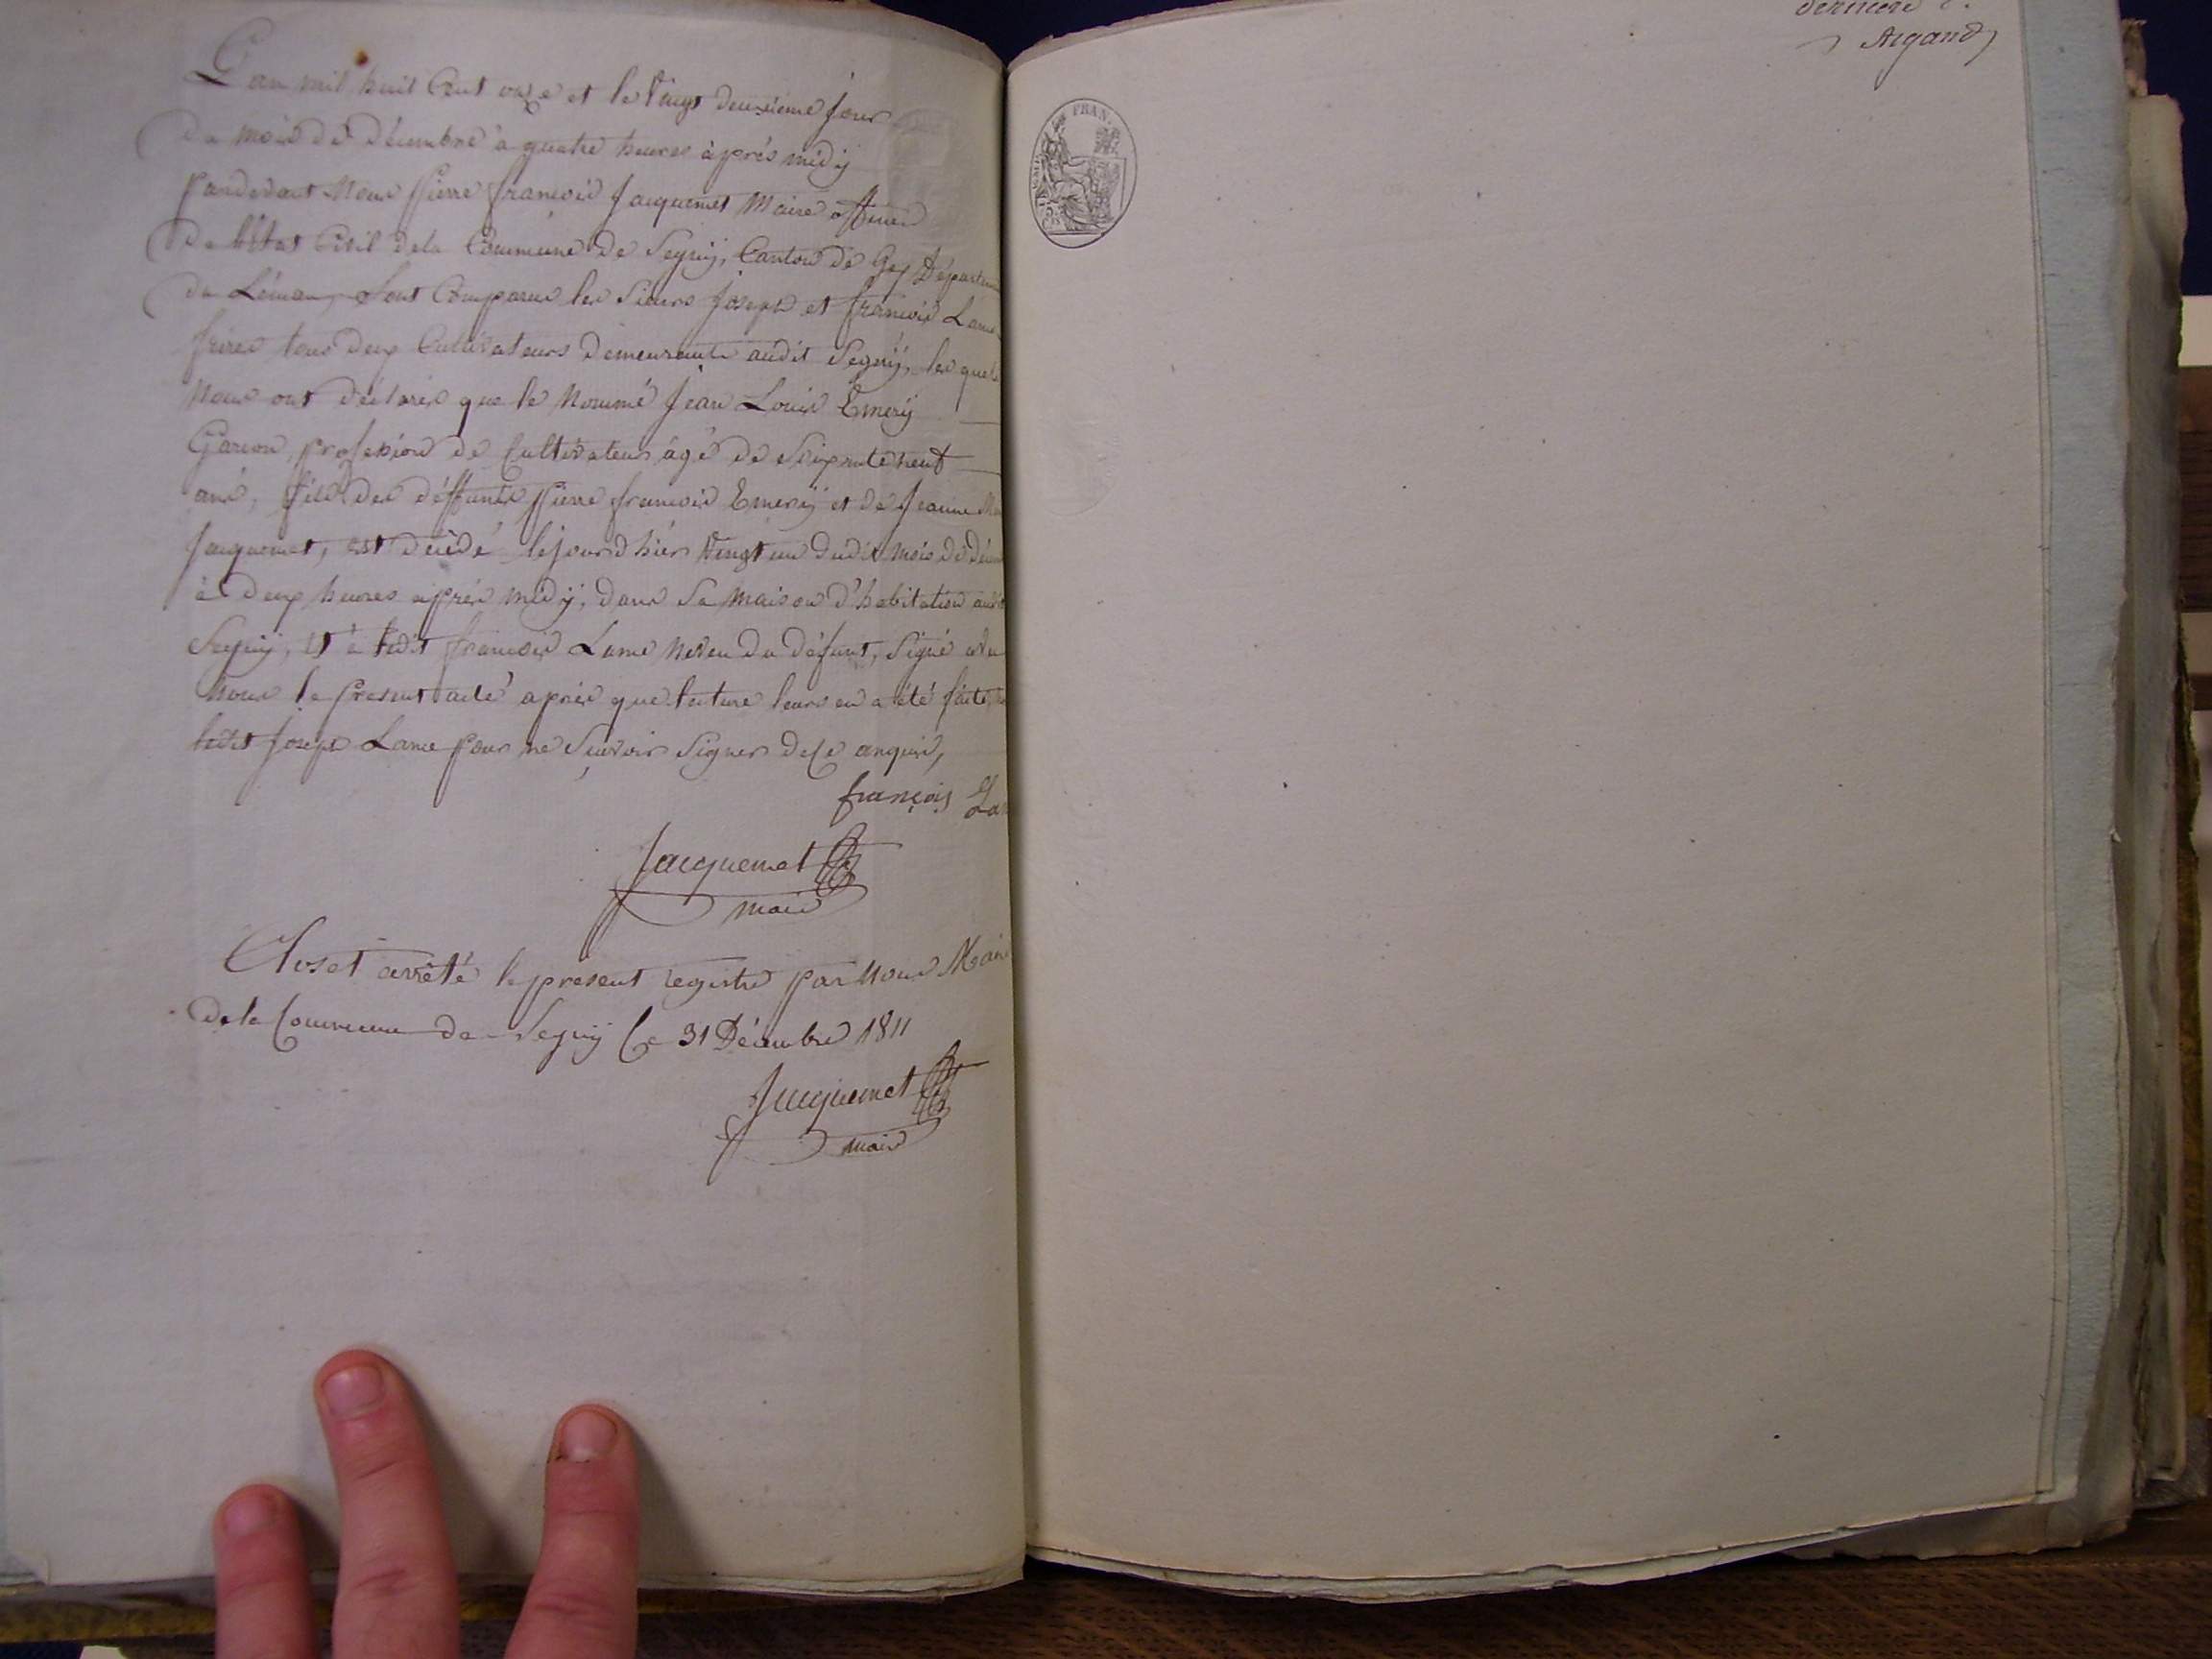 L'an mil huit Cent onze et le vingt deuxième jour
du mois de décembre à quatre heures après midÿ
pardevant Nous Pierre françois Jacquemet Maire officier
de l'état Civil dela Commune de Segnÿ, Canton de Gex Départem
du Léman, sont Comparus les Sieurs Joseph et françois Lame
freres tous deux Cultivateurs demeurants audit Segnÿ, les quels
Nous ont déclarés que le Nommé Jean Louis Emerÿ
Garcon, profession de Cultivateur âgé de Soixante neuf
ans, fils des déffunts Pierre françois Emerÿ et de Jeanne
Jacquemet, est décédé le jourd'hier vingt un dudit mois de déc
à deux heures après midÿ, dans Sa maison d'habitation audit
Segnÿ, et à ledit françois Lame neveu du défunt, Signé avec
Nous le present acte après que lecture leurs en a été faite,
ledit Joseph Lame pour ne Scavoir Signer de ce enquis,
françois La
Jacquemet
maire
Clos et arrêté le present registre par Nous Maire
de la Commune de Segnÿ le 31 Décembre 1811
Jacquemet
maire
derniere
Argand
FRAN.